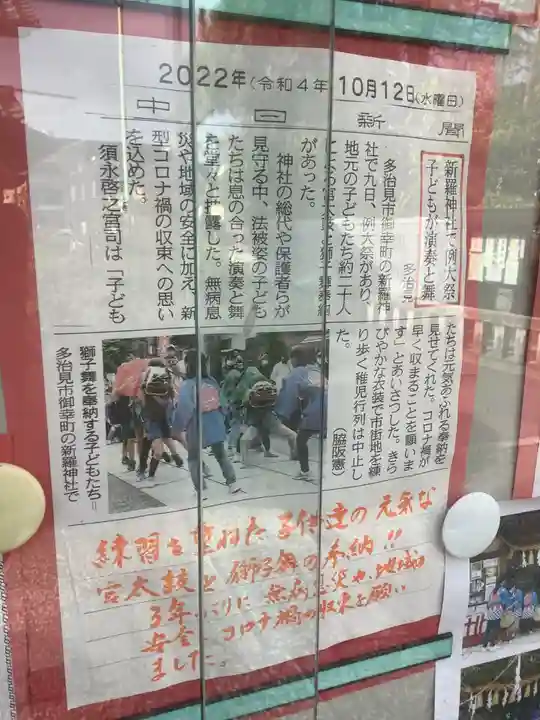 2022年(令和4年 10月12日(水曜日)
中日新聞
新羅神社で例大祭
子どもが演奏と舞
多治見
多治見市御幸町の新羅神
社で九日、例大祭があり、
地元の子どもたち約二十人
があった。
神社の総代や保護者らが
見守る中、法被姿の子ども
たちは息の合った演奏と舞
を堂々と披露した。無病息
災や地域の安全に加え、新
型コロナ禍の収束への思い
を込めた。
須永啓之宮司は「子ども
たちは元気あふれる奉納を
見せてくれた。コロナ禍が
早く収まることを願いま
す」とあいさつした。きら
びやかな衣装で市街地を練
り歩く稚児行列は中止し
た。
(脇阪憲)
獅子舞を奉納する子どもたち=
多治見市御幸町の新羅神社で
練習を重ねた子供達の元気な
宮太鼓と獅子舞の奉納!!
3年ぶりに無病息災や、地域の
安全、コロナ禍の収束を願い
ました。